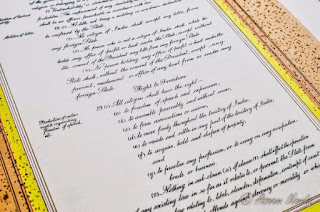 Abolition of titles.
be conferred by the State.
No citizen of India shall accept any title from
any foreign State.
No person who is not a citizen of India shall, while he
holds any office of profit or trust under the State, accept without the
consent of the President any title from any foreign State.
No person holding any office of profit or trust under the
State shall, without the consent of the President, accept any
present, emolument, or office of any kind from or under any
foreign State.
Right to Freedom
Protection of certain rights regarding freedom of speech, etc.
19. (1) All citizens shall have the right—
(a) to freedom of speech and expression;
(b) to assemble peaceably and without arms;
(c) to form associations or unions;
(d) to move freely throughout the territory of India;
(e) to reside and settle in any part of the territory of India;
(f) to acquire, hold and dispose of property;
and
(g) to practise any profession, or to carry on any occupation,
trade or business.
Nothing in sub-clause (a) of clause (1) shall affect the operation
of any existing law in so far as it relates to, or prevent the State from
making any law relating to, libel, slander, defamation, contempt of court